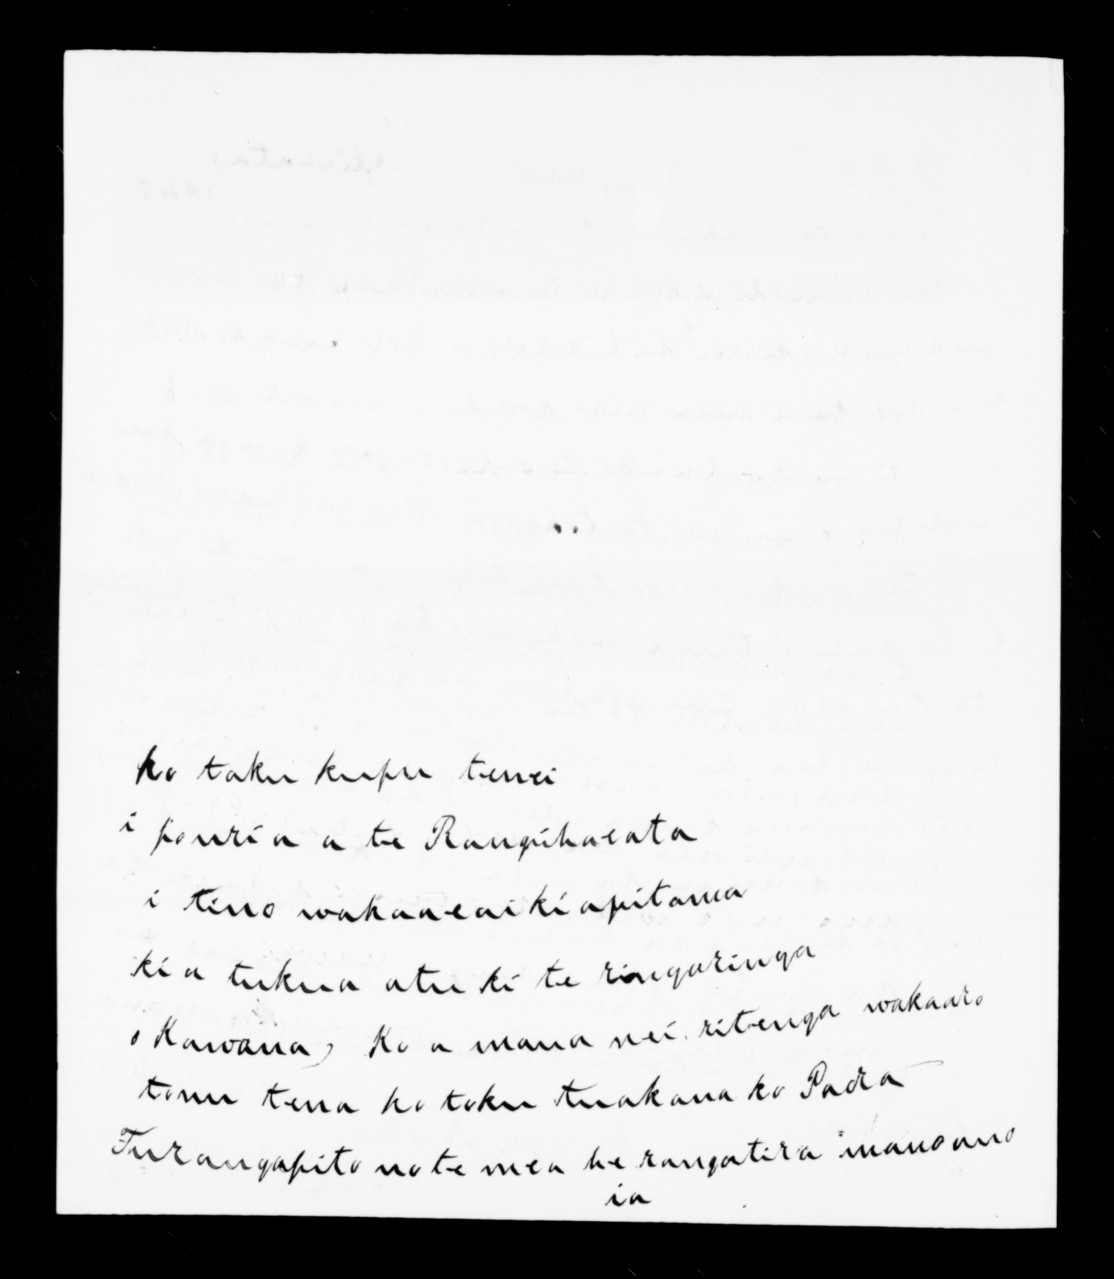 ko taku kupu tenei
i pouri a a te Rangihaeata
i tino wakaae ai ki apitama
kia tukua atu ki te ringaringa
o Kawana, Ko a mana nei ritenga wakaaro
tonu tena ko toku tuakana ko Para
Turangapito no te mea he rangatira imano ano
ia